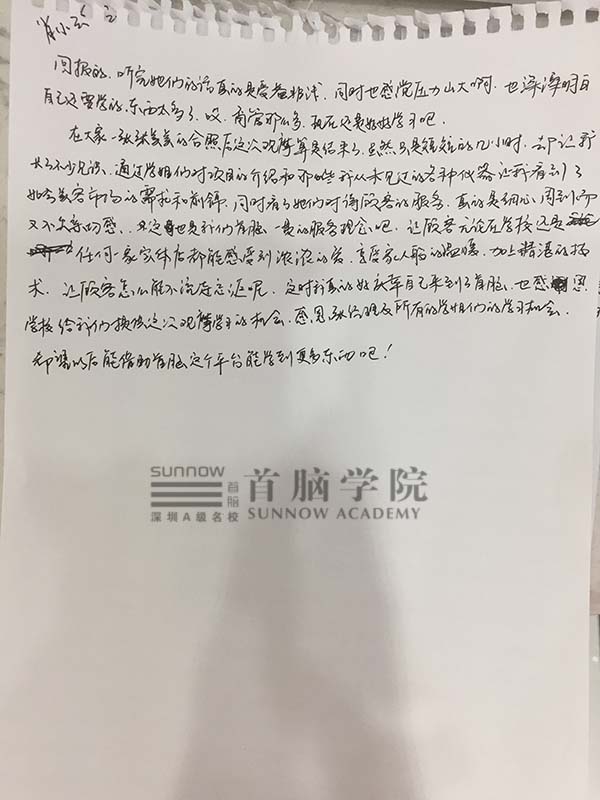 肖小云 2
回报的。听完她们的话真的是受益非浅。同时也感觉压力山大啊。也深深明白
自己还要学的东西太多了。哎，甭管那么多，现在还是好好学习吧。
在大家一张张美美的合照后这次观摩算是结束了。虽然只是短短的几小时，却让我
长了不少见识。通过学姐们对项目的介绍和那些我从未见过的各种仪器让我看到了
如今美容市场的需求和前锋。同时看了她们对待顾客的服务，真的是细心、周到而
又不失亲切感。这也是我们首脑一贯的服务理念吧。让顾客无论在学校还是
任何一家实体店都能感受到浓浓的爱，享受家人般的温暖，加上精湛的技
术，让顾客怎么能不流连忘返呢。这时我真的好庆幸自己来到了首脑。也感恩
学校给我们提供这次观摩学习的机会。感恩张经理及所有的学姐们的学习机会。
希望以后能借助首脑这个平台能学到更多东西吧！
SUNNOW 首脑
深圳A级名校
首脑学院
SUNNOW ACADEMY